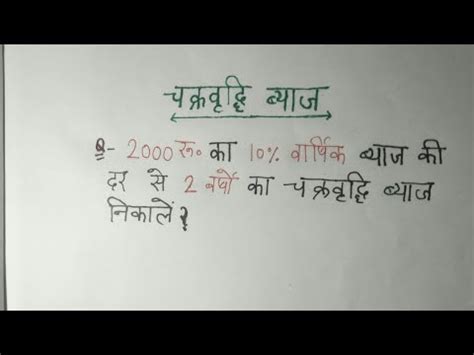 चक्रवृद्धि ब्याज
Q- 2000 रु० का 10% वार्षिक ब्याज की
दर से 2 वर्षों का चक्रवृद्धि ब्याज
निकालें?